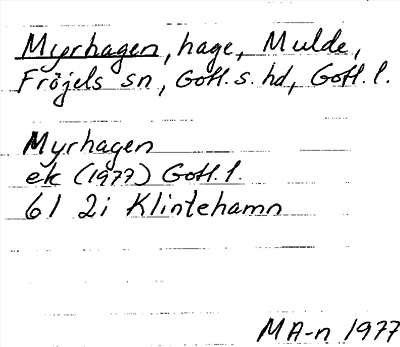 Myrhagen, hage, Mulde,
Fröjels sn, Gotl. s. hd, Gotl. l.
Myrhagen
ek (1977) Gotl. l.
6I 2i Klintehamn
MA-n 1977